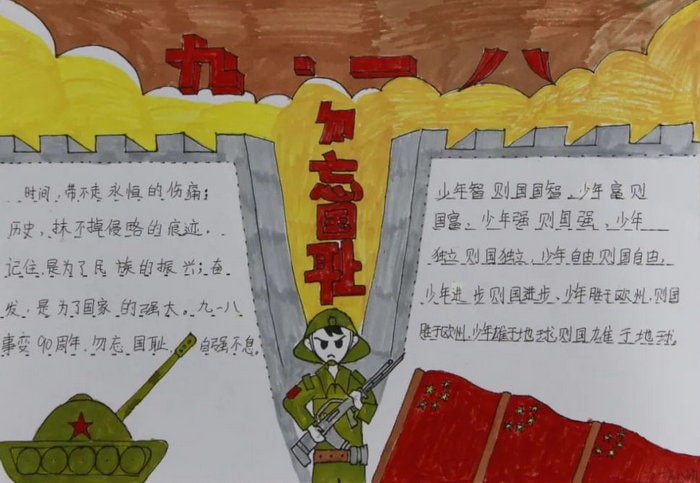 九·一八
勿忘国耻
时间,带不走永恒的伤痛;
历史,抹不掉侵略的痕迹.
记住是为了民族的振兴;奋
发,是为了国家的强大。九一八
事变90周年,勿忘国耻,自强不息。
少年智则国国智,少年富则
国富,少年强则国强,少年
独立则国独立,少年自由则国自由,
少年进步则国进步,少年胜于欧州,则国
胜于欧州,少年雄于地球,则国雄于地球,